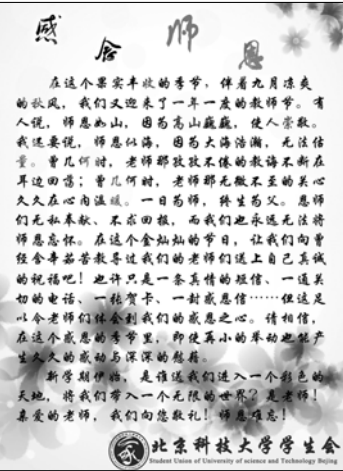 感念师恩
在这个果实丰收的季节，伴着九月凉爽
的秋风，我们又迎来了一年一度的教师节。有
人说，师恩如山，因为高山巍巍，使人崇敬。
我还要说，师恩似海，因为大海浩瀚，无法估
量。曾几何时，老师那孜孜不倦的教诲不断在
耳边回荡；曾几何时，老师那无微不至的关心
久久在心内温暖。一日为师，终生为父。恩师
们无私奉献、不求回报，而我们也永远无法将
师恩忘怀。在这个金灿灿的节日，让我们向曾
经含辛茹苦教导过我们的老师们送上自己真诚
的祝福吧！也许只是一条真情的短信、一通关
切的电话、一张贺卡、一封感恩信……但这足
以令老师们体会到我们的感恩之心。请相信，
在这个感恩的季节里，即使再小的举动也能产
生久久的感动与深深的慰藉。
新学期伊始，是谁送我们进入一个彩色的
天地，将我们带入一个无限的世界？是老师！
亲爱的老师，我们向您敬礼！师恩难忘！
北京科技大学学生会
Student Union of University of science and Technology Beijing